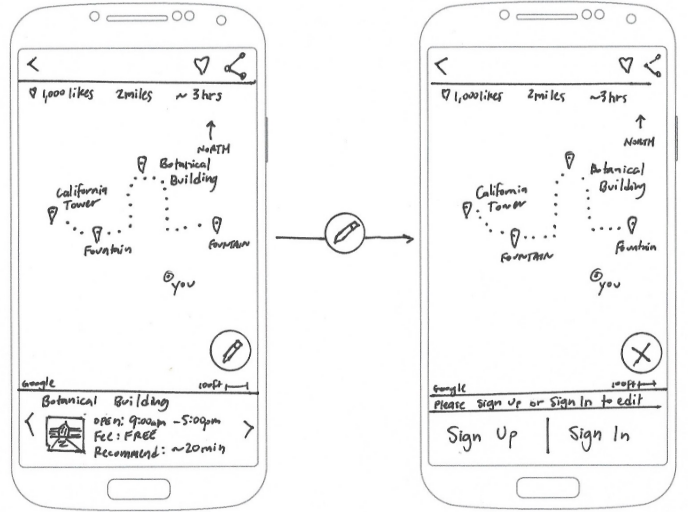 ♡ 1,000 likes 2 miles ~ 3 hrs
NORTH
Botanical
Building
California
Tower
Fountain
FOUNTAIN
you
Google 100ft
Botanical Building
< OPEN: 9:00am - 5:00pm >
Fee: FREE
Recommend: ~20 min
♡ 1,000 likes 2 miles ~3 hrs
NORTH
Botanical
Building
California
Tower
FOUNTAIN
Fountain
you
Google 100ft
Please Sign Up or Sign In to edit
Sign Up | Sign In